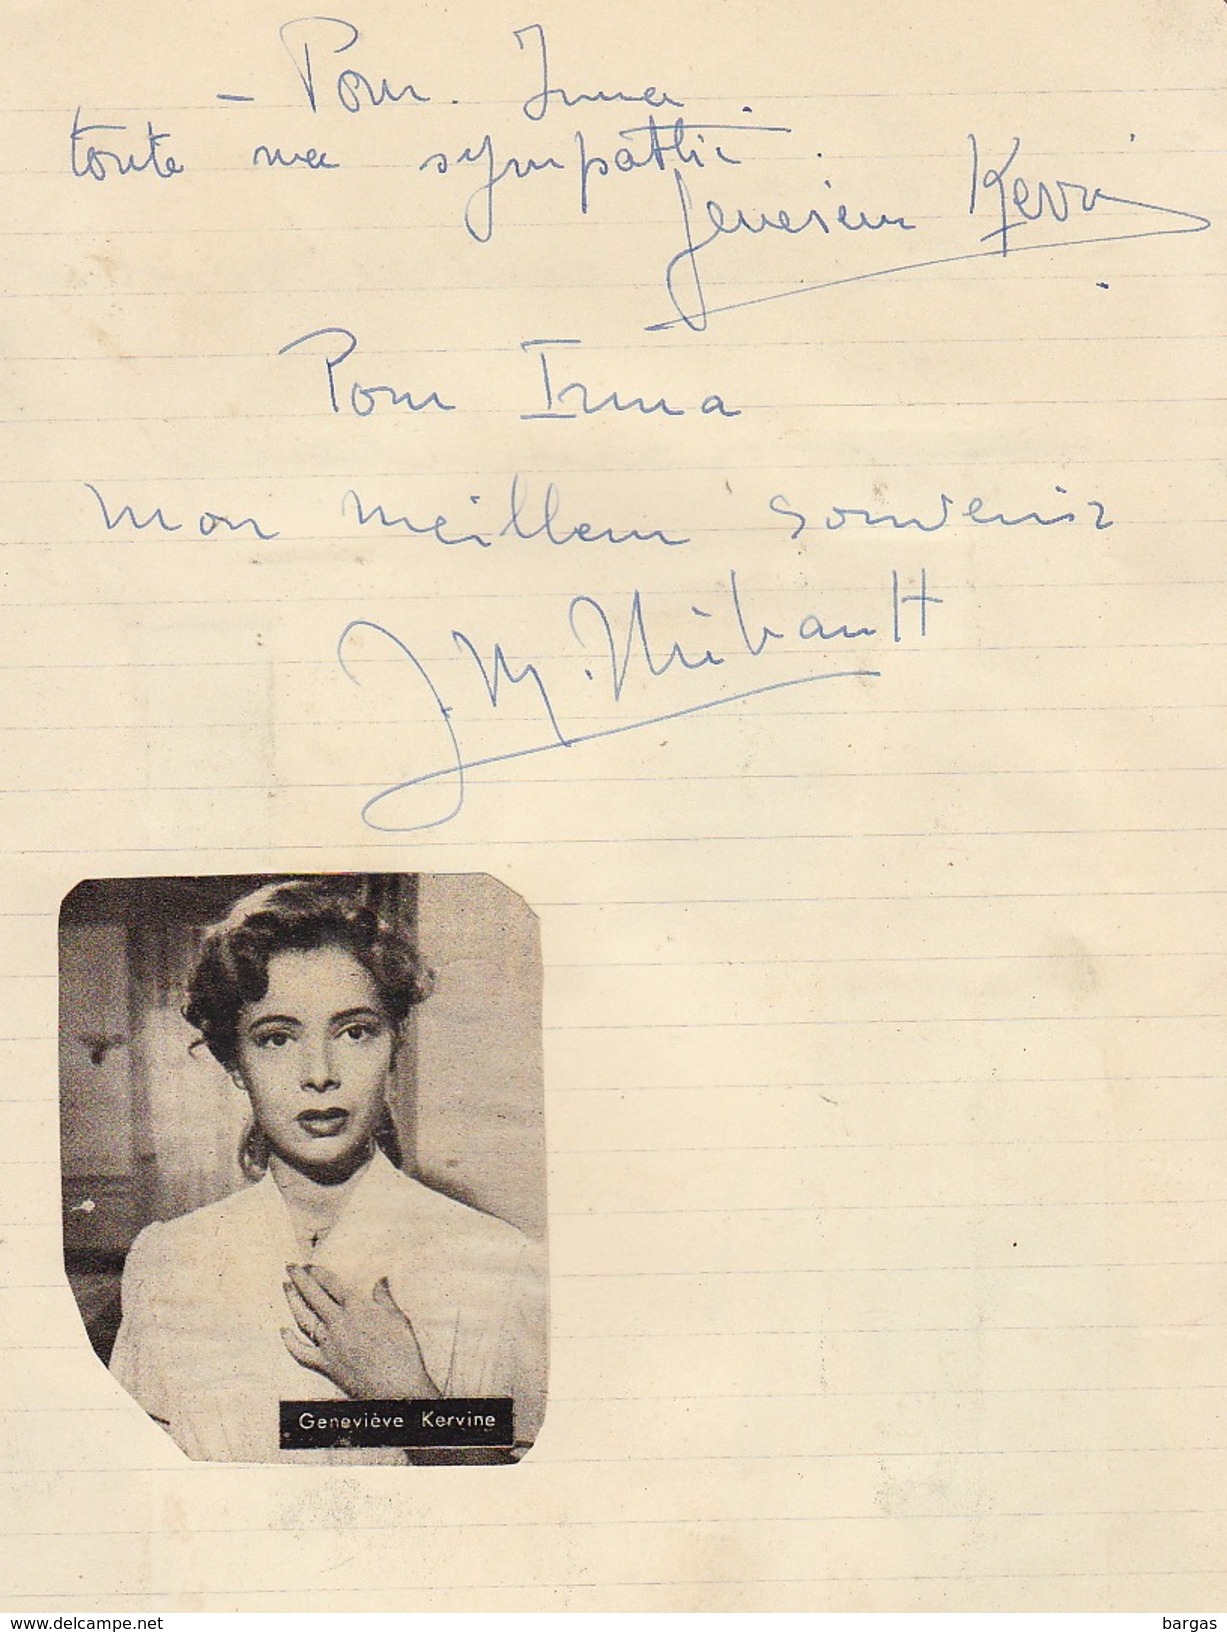 - Pour. Irma.
toute ma sympathie.
Geneviève Kervine
Pour Irma
mon meilleur souvenir
J.M. Thibault
Geneviève Kervine
www.delcampe.net
bargas